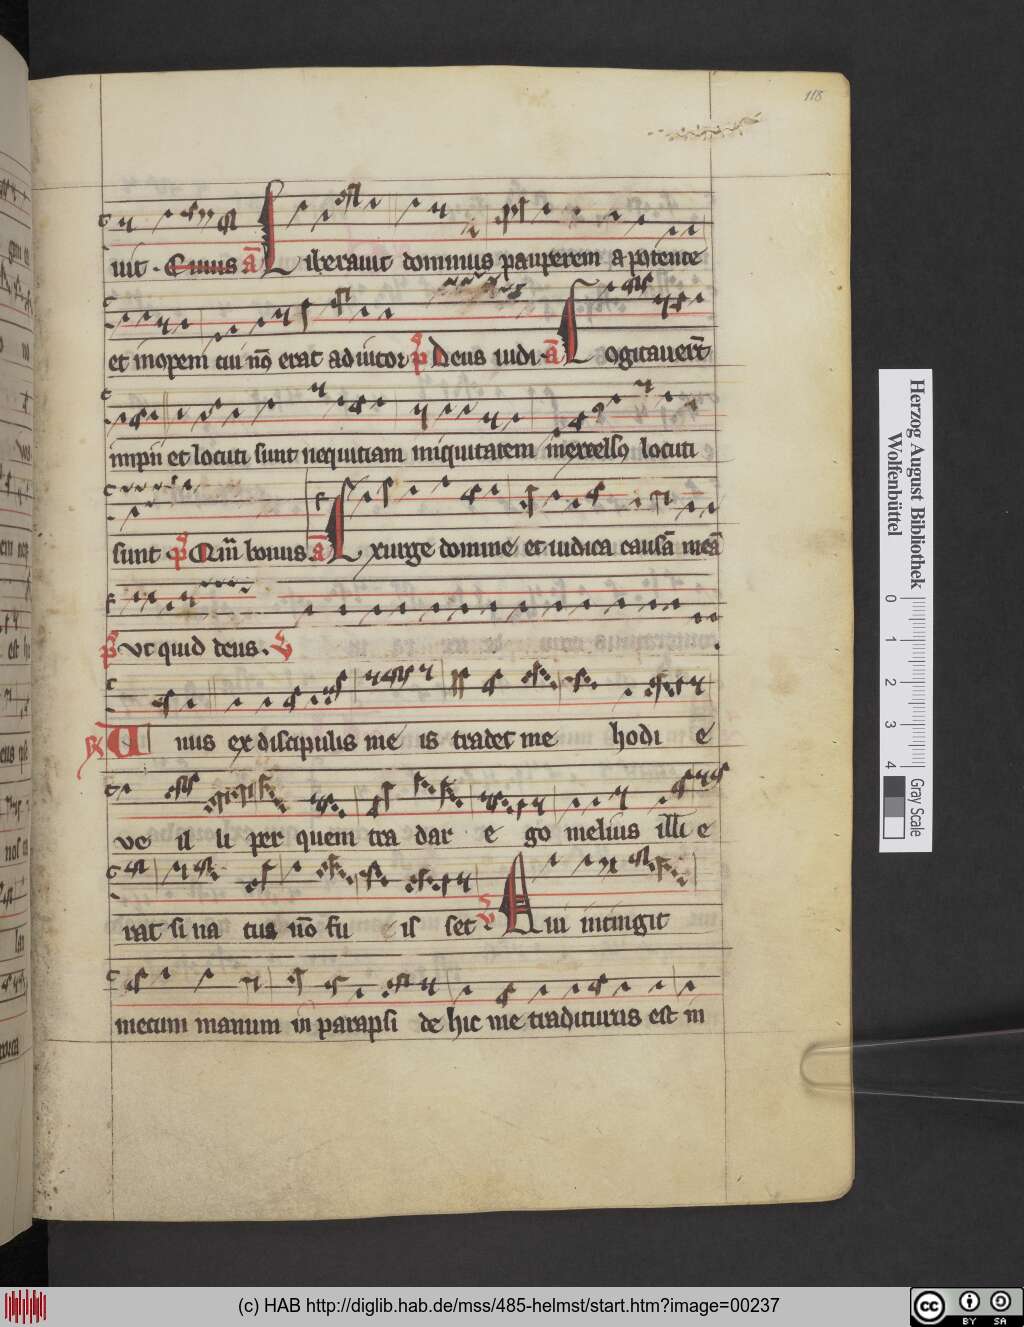 118
uit. Euuis a͞ Liberauit dominus pauperem a potente
et inopem cui nō erat adiutor p̄ Deus iudi. a͞ Cogitauer̄t
impii et locuti sunt nequitiam iniquitatem inexcelso locuti
sunt p̄ Qm̄ bonus. a͞ Exurge domine et iudica causā meā
p̄ Vt quid deus.
Unus ex discipulis me is tradet me hodi e
ve il li per quem tra dar e go melius illi e
rat si na tus nō fu is set Qui intingit
mecum manum in parapsi de hic me traditurus est in
Herzog August Bibliothek
Wolfenbüttel
0 1 2 3 4
Gray Scale
(c) HAB http://diglib.hab.de/mss/485-helmst/start.htm?image=00237
cc BY SA